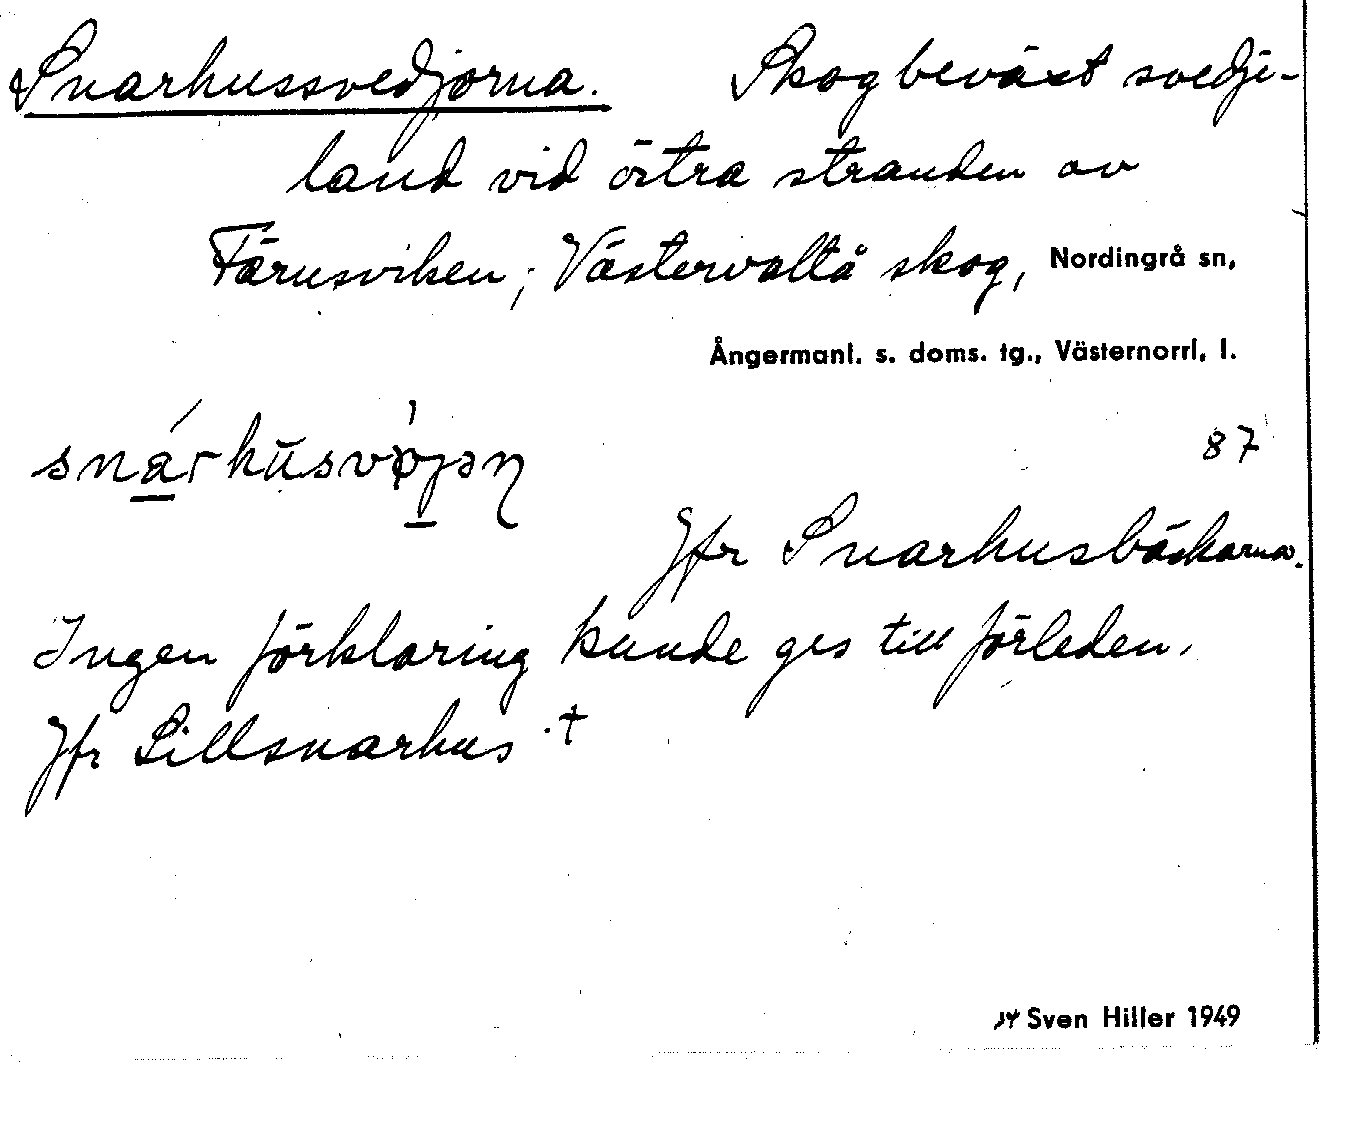 Snarhussvedjorna. Skogbeväxt svedje-
land vid östra stranden av
Färusviken, Västervaltå skog, Nordingrå sn,
Ångermanl. s. doms. tg., Västernorrl. l.
87
Jfr Snarhusbäckarna.
Ingen förklaring kunde ges till förleden.
Jfr Lillsnarhus. +
Sven Hiller 1949